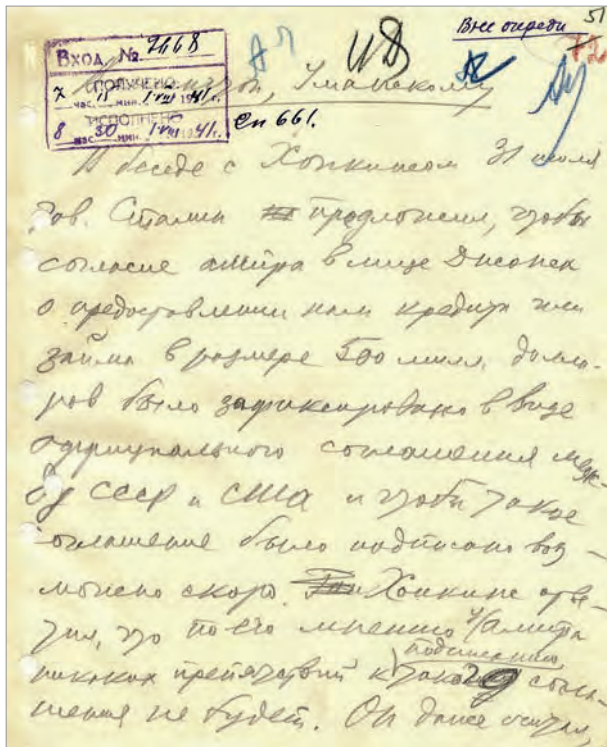 51
Вне очереди
72
Вход. № 7668
ПОЛУЧЕНО
7 час. 11 мин. 1·VIII 1941 г.
ИСПОЛНЕНО
8 час. 30 мин. 1·VIII 1941 г.
Уманскому
Сп 661.
В беседе с Хопкинсом 31 июля
тов. Сталин предложил, чтобы
согласие амер-ва в лице Джонса
о предоставлении нам кредита или
займа в размере 500 милл. долла-
ров было зафиксировано в виде
официального соглашения меж-
ду СССР и США и чтобы такое
соглашение было подписано воз-
можно скоро. Хопкинс отве-
тил, что по его мнению у
никаких препятствий к подписанию
такого согла-
шения не будет. Он даже считал,